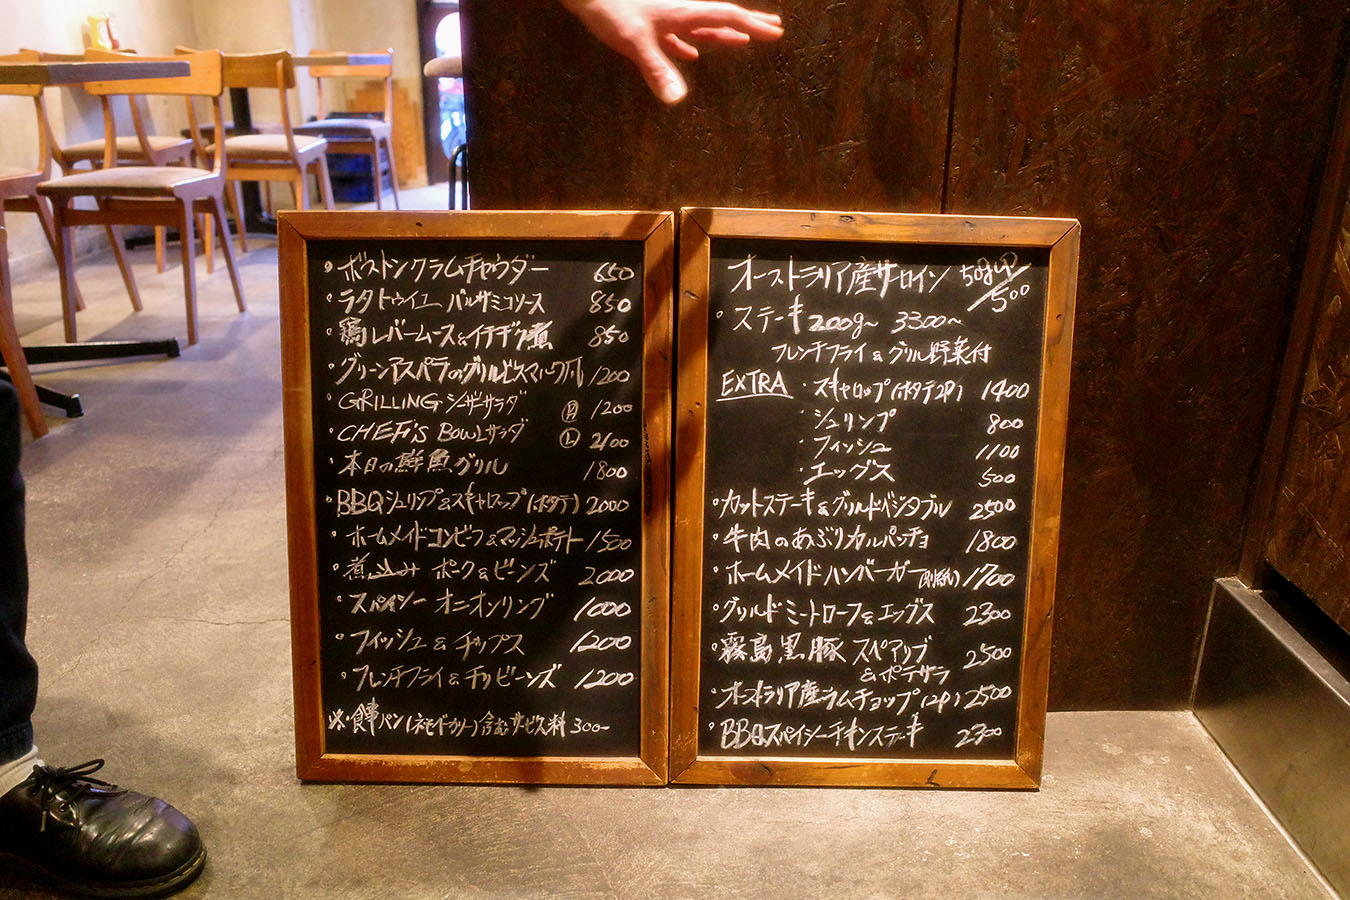 ボストンクラムチャウダー 650
ラタトゥイユ バルサミコソース 850
鶏レバームース&イチヂク煮 850
グリーンアスパラのグリルビスマルク風 1200
GRILLING シーザーサラダ Ⓡ 1200
CHEF'S BOWLサラダ Ⓛ 2100
本日の鮮魚グリル 1800
BBQシュリンプ&スキャロップ(ホタテ) 2000
ホームメイドコンビーフ&マッシュポテト 1500
煮込み ポーク&ビーンズ 2000
スパイシー オニオンリング 1000
フィッシュ&チップス 1200
フレンチフライ&チリビーンズ 1200
※・食事パン 含むサービス料 300-
オーストラリア産サーロイン 50gUP/500
ステーキ200g〜 3300〜
フレンチフライ&グリル野菜付
EXTRA ・スキャロップ(ホタテ2P) 1400
・シュリンプ 800
・フィッシュ 1100
・エッグス 500
カットステーキ&グリルドベジタブル 2500
牛肉のあぶりカルパッチョ 1800
ホームメイドハンバーガー 1700
グリルドミートローフ&エッグス 2300
霧島黒豚 スペアリブ
&ポテサラ 2500
オーストラリア産ラムチョップ(2P) 2500
BBQスパイシーチキンステーキ 2300